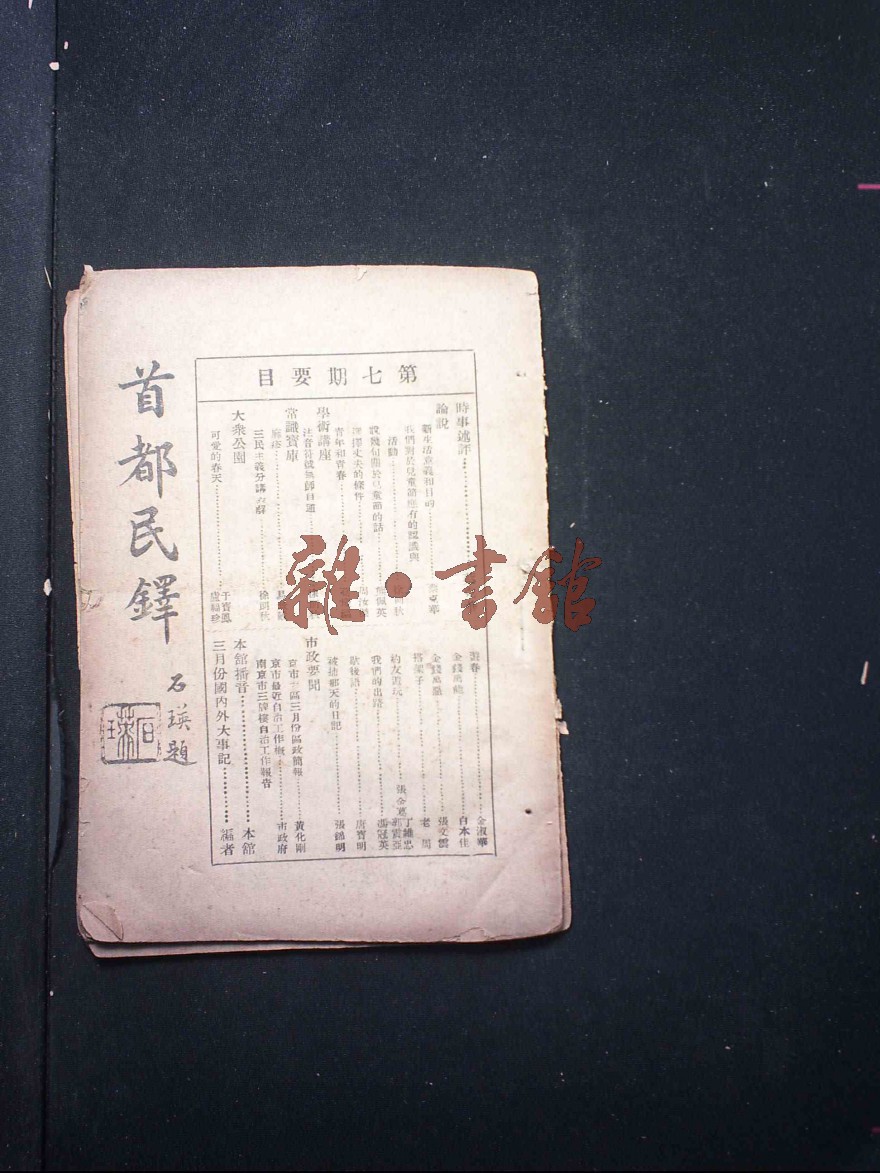 首都民鐸
石瑛題
石瑛
第七期要目
時事述評
論說
新生活意義和目的
我們對於兒童節應有的認識與
活動
說幾句關於兒童節的話
選擇丈夫的條件
青年和青春
學術講座
注音符號無師自通
常識寶庫
三民主義分講 徐朗秋
大衆公園
可愛的春天 于寶鳳
盧福珍
遊春 金淑華
金錢萬能 白本佳
金錢萬惡 張文雲
搭架子 老周
約友遊玩 張金寬
丁維忠
郭震亞
我們的出路 馮冠英
歇後語 唐寶明
被捕那天的日記 張錦明
市政要聞
京市三區三月份區政簡報 黃化剛
京市最近自治工作概 市政府
南京市三牌樓自治工作報告
本館播音 本館
三月份國內外大事記 編者
雜·書館